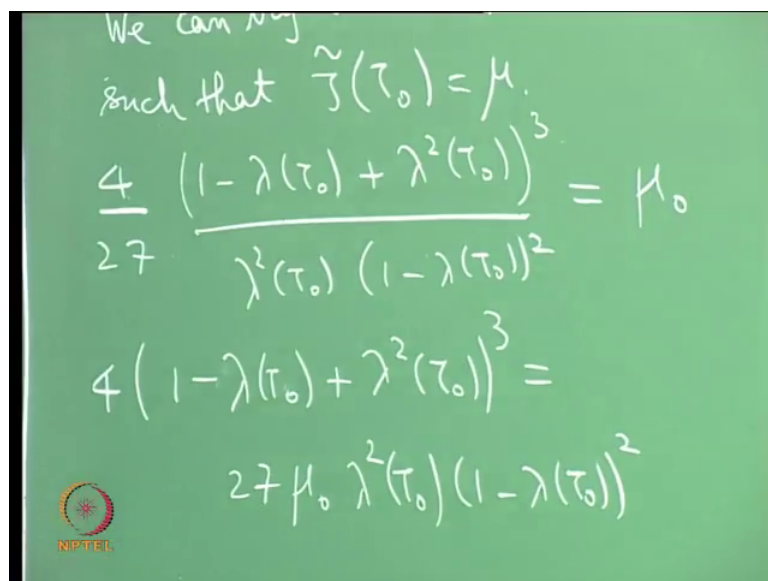 We can
such that J̃(τ₀) = μ.
4/27 (1 - λ(τ₀) + λ²(τ₀))³ / λ²(τ₀) (1 - λ(τ₀))² = μ₀
4(1 - λ(τ₀) + λ²(τ₀))³ =
27 μ₀ λ²(τ₀) (1 - λ(τ₀))²
NPTEL